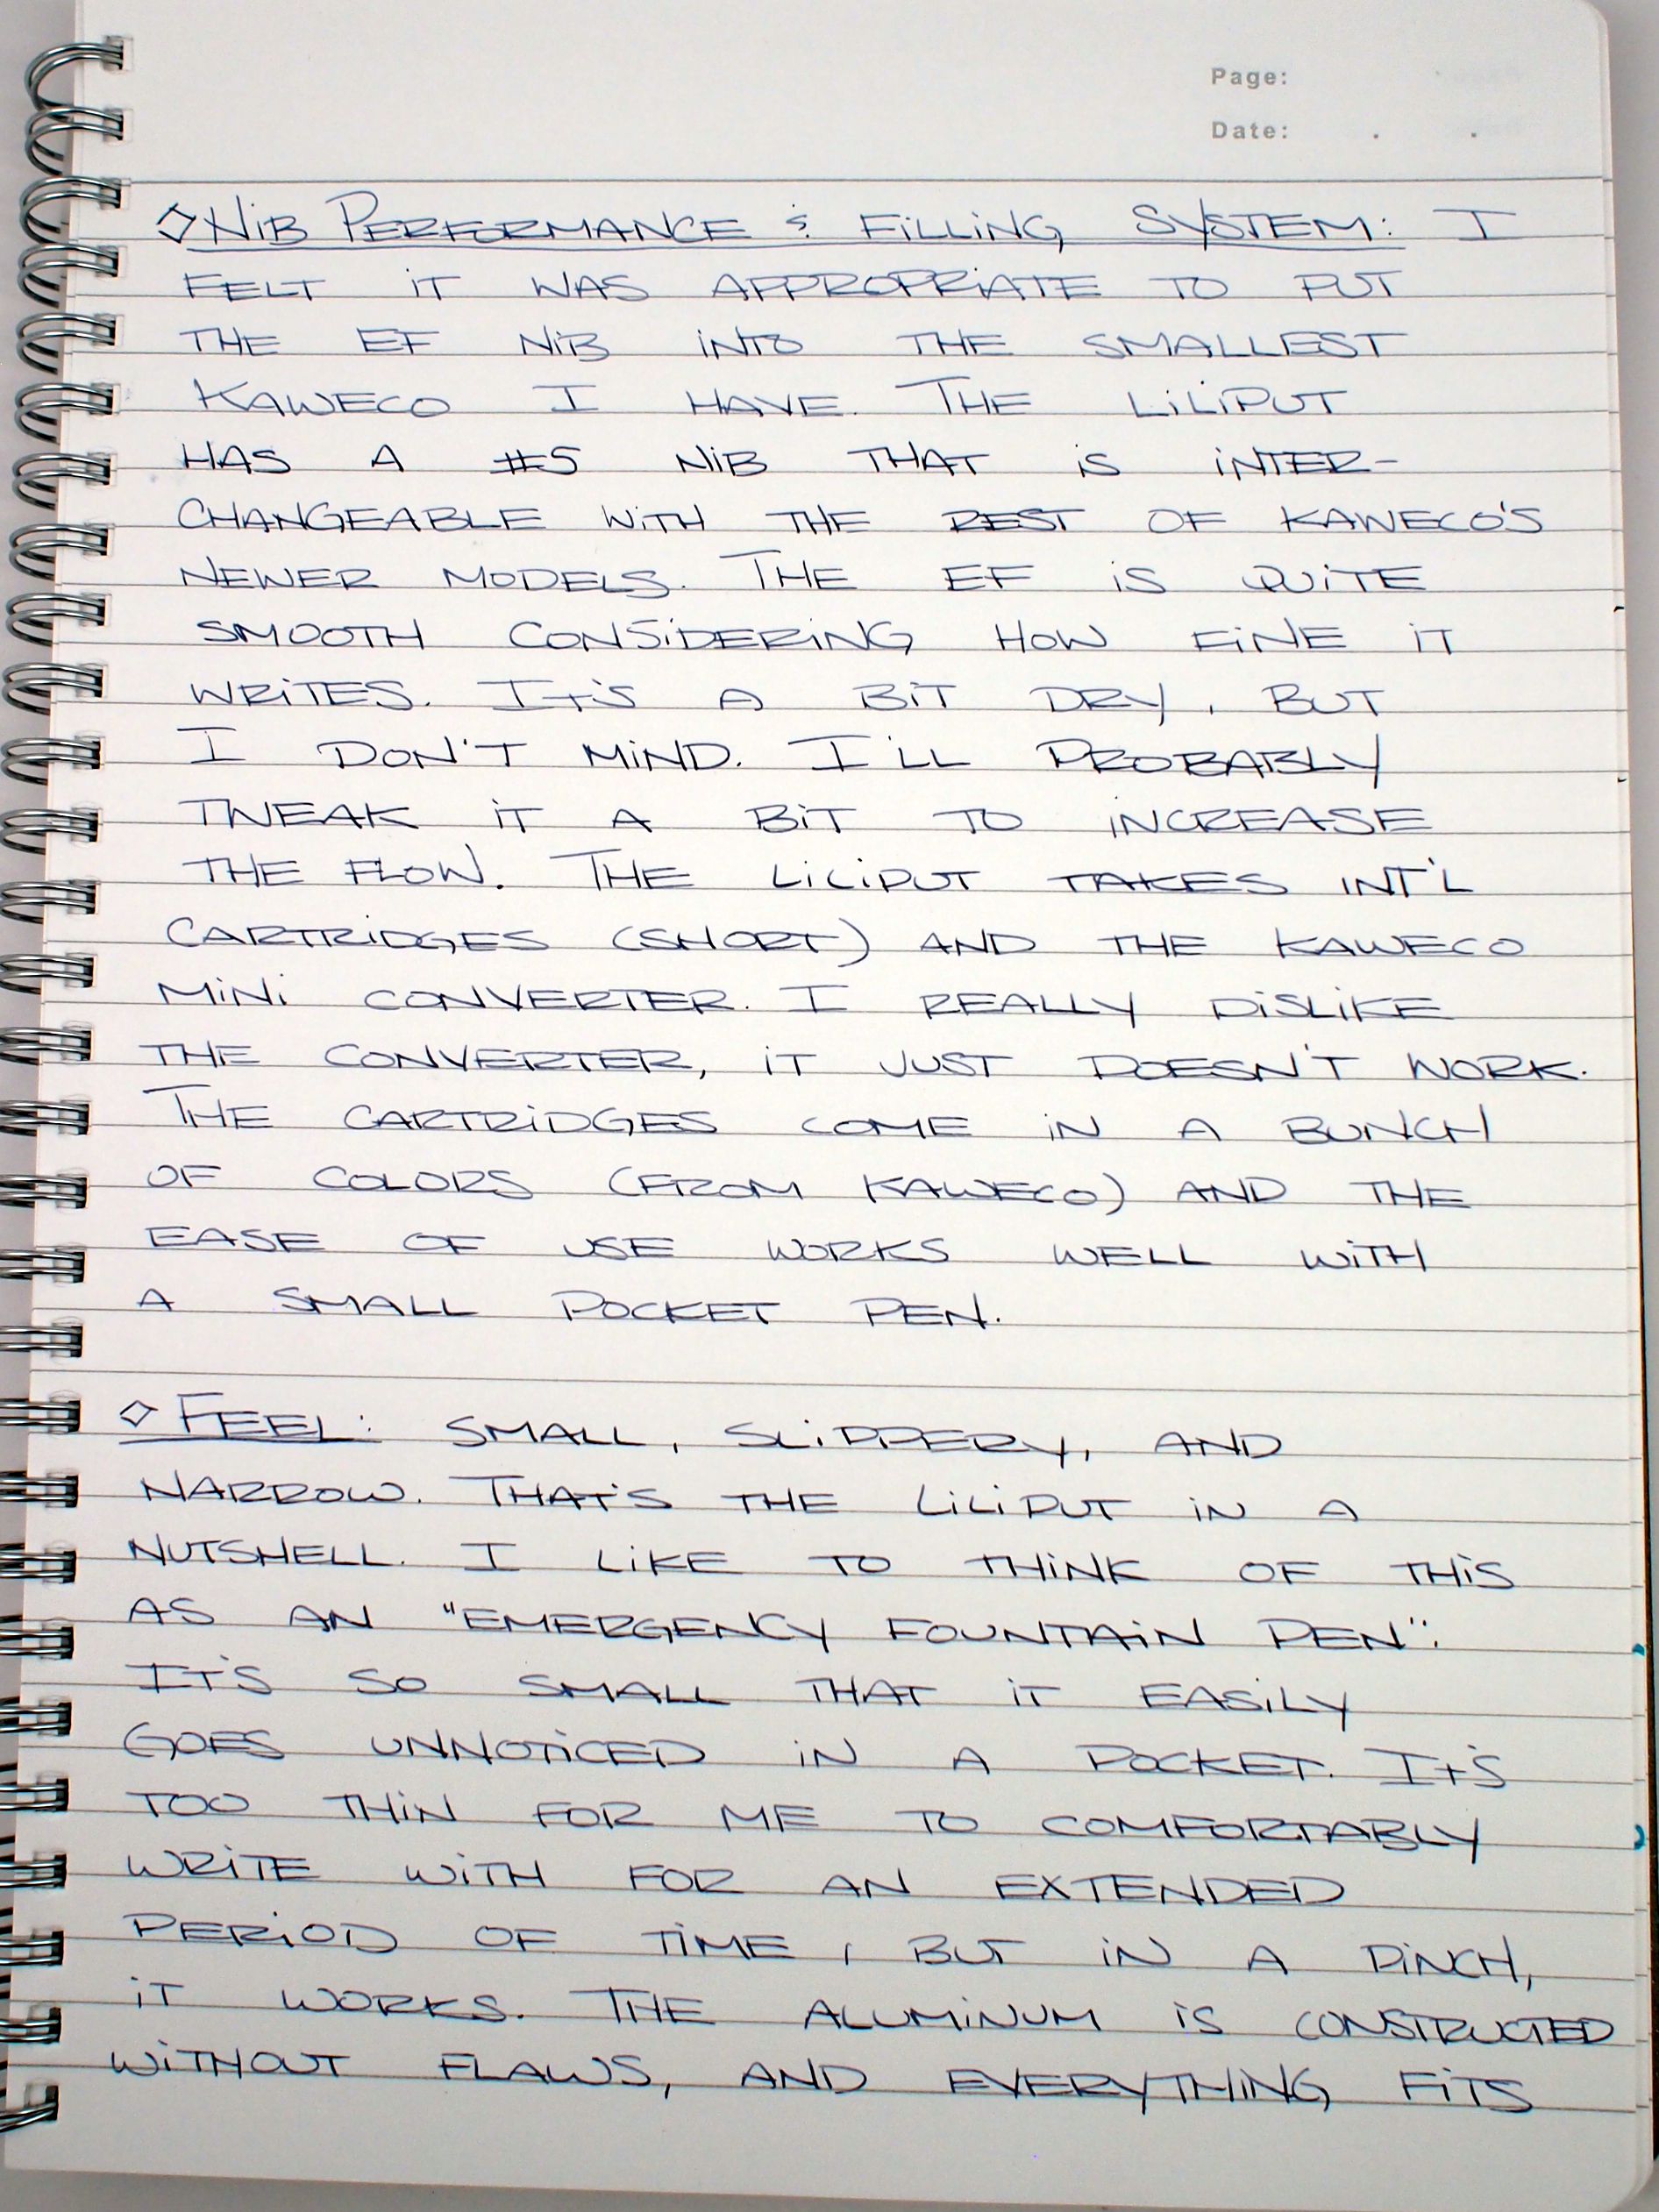 Page:
Date: . .
◇ NiB PERFORMANCE & FiLLiNG SYSTEM: I
FELT iT WAS APPROPRiATE TO PUT
THE EF NiB iNTO THE SMALLEST
KAWECO I HAVE. THE LiLiPUT
HAS A #5 NiB THAT iS iNTER-
CHANGEABLE WiTH THE REST OF KAWECO'S
NEWER MODELS. THE EF iS QUiTE
SMOOTH CONSiDERiNG HOW FiNE iT
WRiTES. IT'S A BiT DRY, BUT
I DON'T MiND. I'LL PROBABLY
TWEAK iT A BiT TO iNCREASE
THE FLOW. THE LiLiPUT TAKES INT'L
CARTRiDGES (SHORT) AND THE KAWECO
MiNi CONVERTER. I REALLY DiSLiKE
THE CONVERTER, iT JUST DOESN'T WORK.
THE CARTRiDGES COME iN A BUNCH
OF COLORS (FROM KAWECO) AND THE
EASE OF USE WORKS WELL WiTH
A SMALL POCKET PEN.
◇ FEEL: SMALL, SLiPPERY, AND
NARROW. THAT'S THE LiLiPUT iN A
NUTSHELL. I LiKE TO THiNK OF THiS
AS AN "EMERGENCY FOUNTAiN PEN".
IT'S SO SMALL THAT iT EASiLY
GOES UNNOTiCED iN A POCKET. IT'S
TOO THiN FOR ME TO COMFORTABLY
WRiTE WiTH FOR AN EXTENDED
PERiOD OF TiME, BUT iN A PiNCH,
iT WORKS. THE ALUMiNUM iS CONSTRUCTED
WiTHOUT FLAWS, AND EVERYTHiNG FiTS